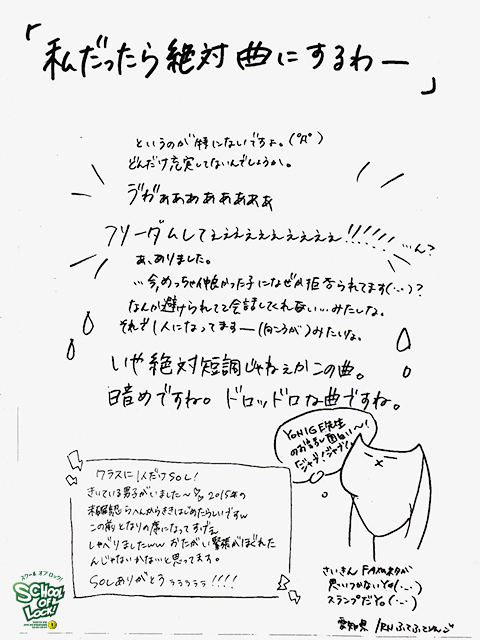 「私だったら絶対曲にするわー」
というのが特にないですよ。(°Д°)
どんだけ充実してないんでしょうか。
ヷがぁぁぁぁぁぁぁぁ
フリーダムしてぇぇぇぇぇぇぇぇぇぇ!!!!!! …ん?
あ、ありました。
…今、めっちゃ仲良かった子になぜか拒否られてます(·_·)?
なんか避けられてて会話してくれない…みたいな。
それで1人になってますー(向こうが)みたいな。
いや絶対短調じゃねぇかこの曲。
暗めですね。ドロッドロな曲ですね。
YONIGE先生
のお話し面白い〜!
「ジャブ!ジャブ!」
クラスに1人だけSOL!
きいている男子がいました〜 2015年の
らへんからききはじめたらしいですw
この前となりの席になってすげぇ
しゃべりましたww おたがい緊張がほぐれた
んじゃないかなぃと思ってます。
SOLありがとぅぅぅぅぅぅ!!!!
さいきん FAXのネタが
思いつかないYO(·_·)
スランプだYO(·_·)
愛知県 /RN ふてふてりんご
スクール オブ ロック!
SCHOOL OF LOCK!